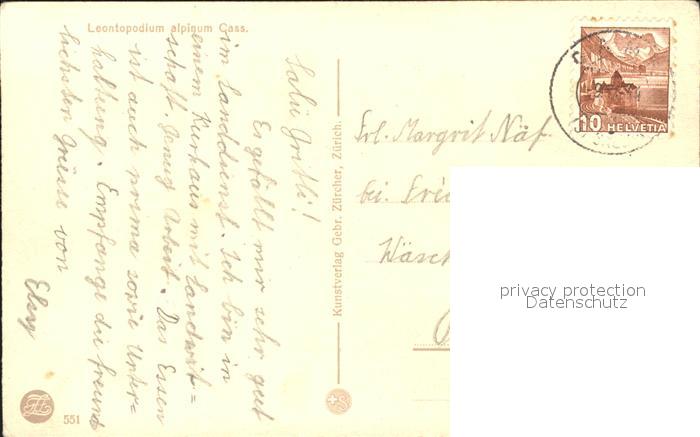 Leontopodium alpinum Cass.
Salü Gritli!
Es gefällt mir sehr gut
im Landdienst. Ich bin in
einem Kurhaus mit Landwirt=
schaft. Genug Arbeit. Das Essen
ist auch prima sowie Unter=
haltung. Empfange die freund
lichsten Grüsse von
551
Kunstverlag Gebr. Zürcher, Zürich.
10 HELVETIA
Frl. Margrit Näf
bei
Wäsch
privacy protection
Datenschutz